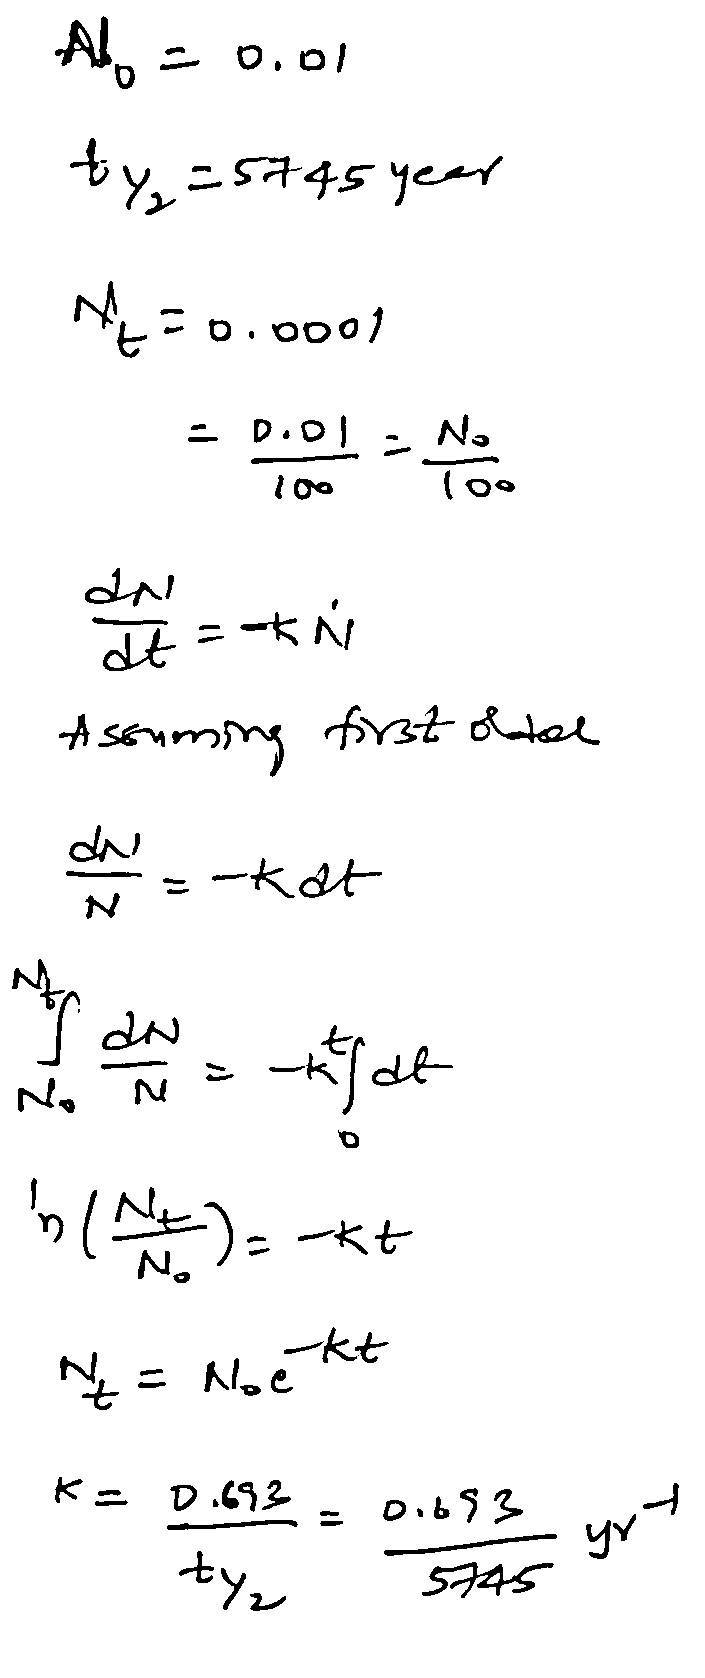 N₀ = 0.01
t 1/2 = 5745 year
N_t = 0.0001
= 0.01/100 = N₀/100
dN/dt = -kN
Assuming first order
dN/N = -k dt
∫_{N₀}^{N_t} dN/N = -k ∫_0^t dt
ln(N_t/N₀) = -kt
N_t = N₀ e^{-kt}
K = 0.693/t 1/2 = 0.693/5745 yr⁻¹